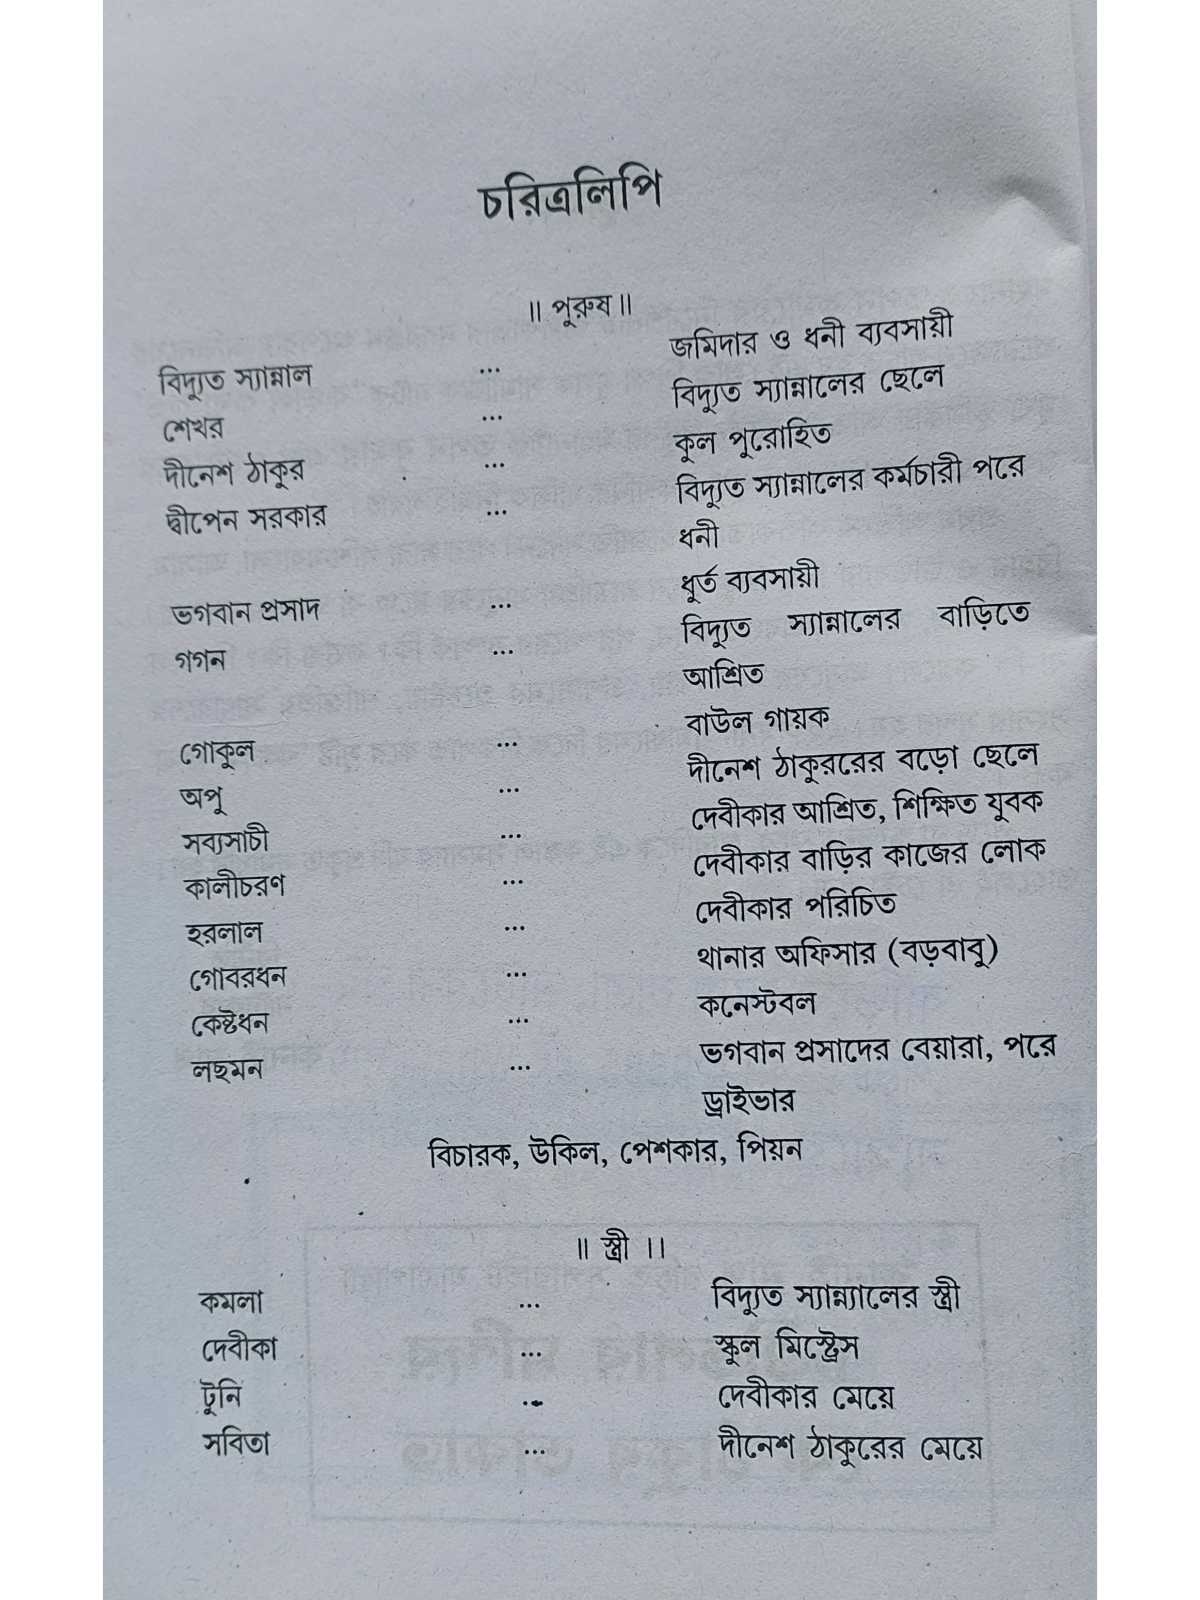 চরিত্রলিপি
॥ পুরুষ ॥
বিদ্যুত স্যান্নাল ... জমিদার ও ধনী ব্যবসায়ী
শেখর ... বিদ্যুত স্যান্নালের ছেলে
দীনেশ ঠাকুর ... কুল পুরোহিত
দ্বীপেন সরকার ... বিদ্যুত স্যান্নালের কর্মচারী পরে
ধনী
ভগবান প্রসাদ ... ধুর্ত ব্যবসায়ী
গগন ... বিদ্যুত স্যান্নালের বাড়িতে
আশ্রিত
গোকুল ... বাউল গায়ক
অপু ... দীনেশ ঠাকুররের বড়ো ছেলে
সব্যসাচী ... দেবীকার আশ্রিত, শিক্ষিত যুবক
কালীচরণ ... দেবীকার বাড়ির কাজের লোক
হরলাল ... দেবীকার পরিচিত
গোবরধন ... থানার অফিসার (বড়বাবু)
কেষ্টধন ... কনেস্টবল
লছমন ... ভগবান প্রসাদের বেয়ারা, পরে
ড্রাইভার
বিচারক, উকিল, পেশকার, পিয়ন
॥ স্ত্রী ।।
কমলা ... বিদ্যুত স্যান্ন্যালের স্ত্রী
দেবীকা ... স্কুল মিস্ট্রেস
টুনি ... দেবীকার মেয়ে
সবিতা ... দীনেশ ঠাকুরের মেয়ে